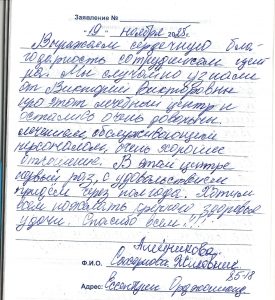 Заявление №
19 - ноября 2025г.
Выражаем сердечную бла-
годарность сотрудникам
Мы случайно узнали
от Виктории Викторовны
про этот лечебный центр и
остались очень довольны.
лечением, обслуживающим
персоналом, очень хорошее
отношение. В этом центре
первый раз, с удовольствием
придем через полгода. Хотим
всем пожелать крепкого здоровья
удачи. Спасибо всем!!!
Алейникова
Ф.И.О.
8518
Адрес: Ессентуки Орджоникид